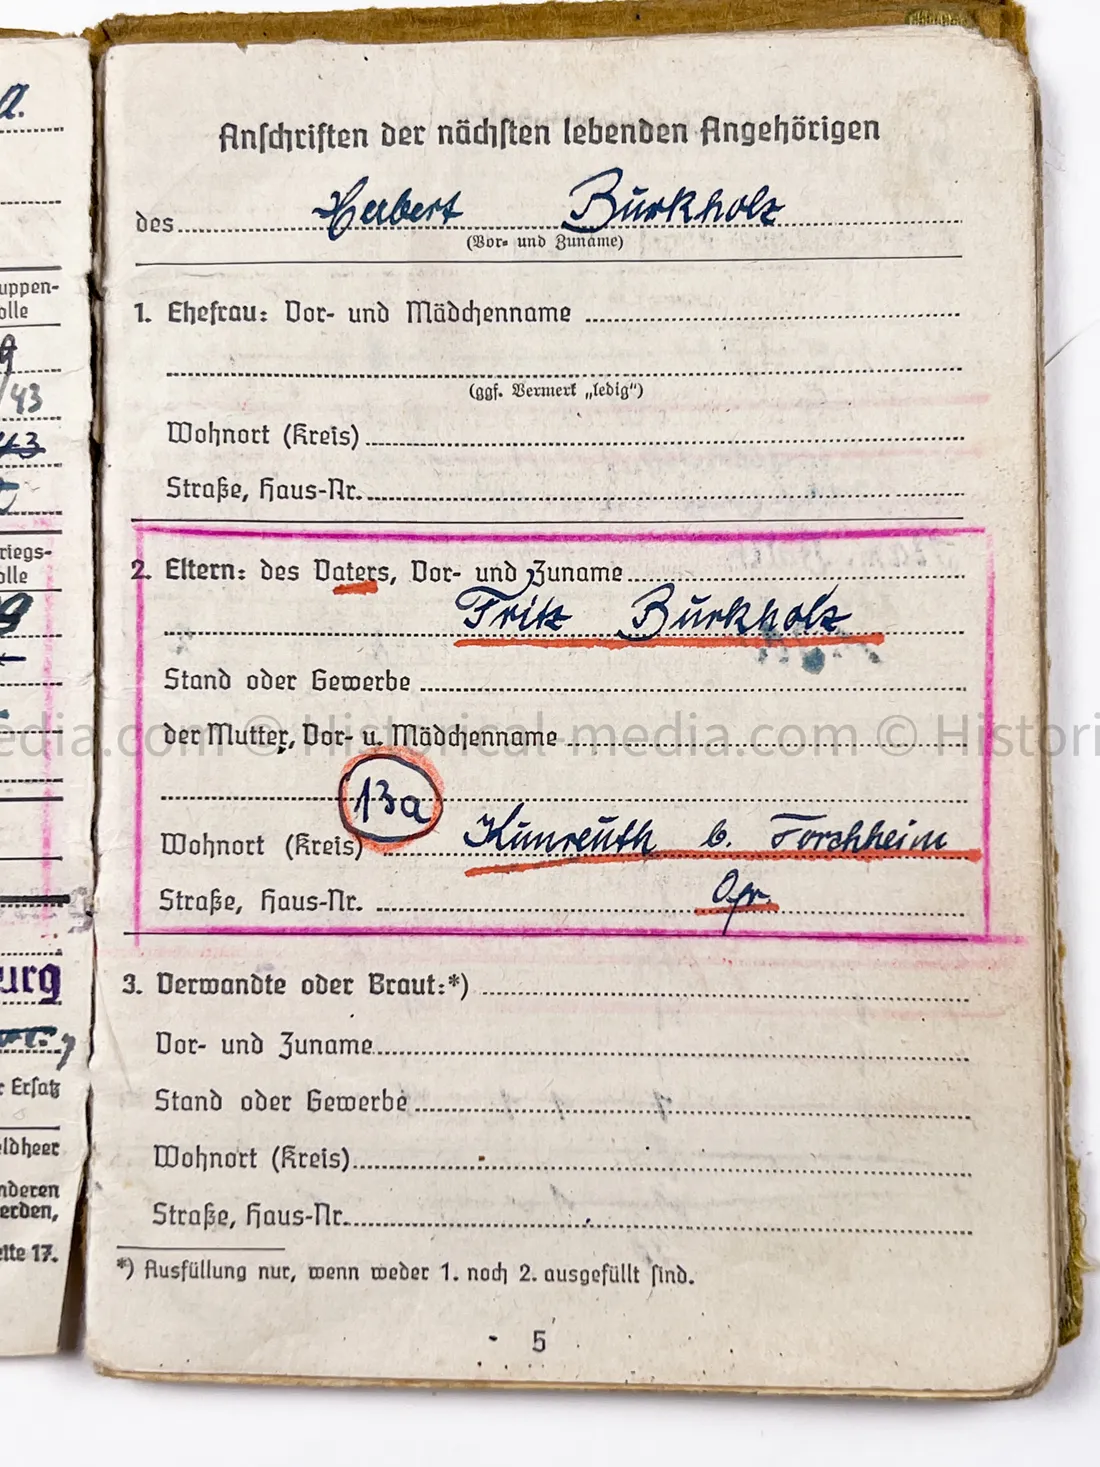 a.
uppen-
olle
9
/43
43
riegs-
olle
9
urg
r Ersatz
ldheer
nderen
erden,
eite 17.
Anschriften der nächsten lebenden Angehörigen
des Herbert Burkholz
(Vor- und Zuname)
1. Ehefrau: Vor- und Mädchenname
(ggf. Vermerk „ledig“)
Wohnort (Kreis)
Straße, Haus-Nr.
2. Eltern: des Vaters, Vor- und Zuname
Fritz Burkholz
Stand oder Gewerbe
edia.com © Historical-media.com © Histori
der Mutter, Vor- u. Mädchenname
13a
Wohnort (Kreis) Kunreuth b. Forchheim
Straße, Haus-Nr. Ofr.
3. Verwandte oder Braut:*)
Vor- und Zuname
Stand oder Gewerbe
Wohnort (Kreis)
Straße, Haus-Nr.
*) Ausfüllung nur, wenn weder 1. noch 2. ausgefüllt sind.
5